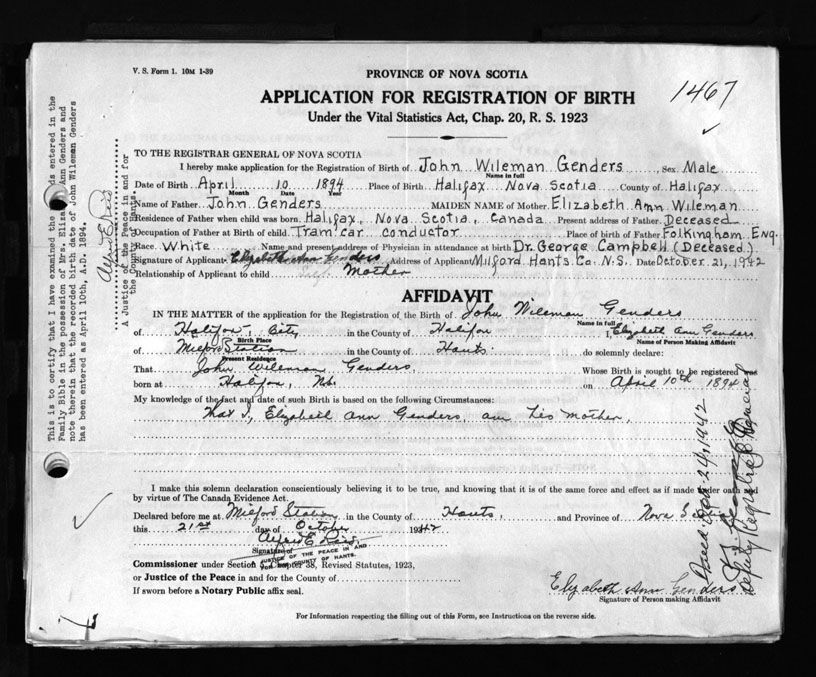 V. S. Form 1. 10M 1-39
PROVINCE OF NOVA SCOTIA
1467
APPLICATION FOR REGISTRATION OF BIRTH
Under the Vital Statistics Act, Chap. 20, R. S. 1923
TO THE REGISTRAR GENERAL OF NOVA SCOTIA
I hereby make application for the Registration of Birth of John Wileman Genders, Sex Male
Name in full
Date of Birth April 10 1894 Place of Birth Halifax Nova Scotia County of Halifax
Month Date Year
Name of Father John Genders MAIDEN NAME of Mother Elizabeth Ann Wileman
Residence of Father when child was born: Halifax, Nova Scotia, Canada Present address of Father Deceased
Occupation of Father at Birth of child Tram car conductor Place of birth of Father Folkingham Eng.
Race White Name and present address of Physician in attendance at birth Dr. George Campbell (Deceased)
Signature of Applicant Elizabeth Ann Genders Address of Applicant Milford Hants Co. N.S. Date October 21, 1942
Relationship of Applicant to child Mother
AFFIDAVIT
IN THE MATTER of the application for the Registration of the Birth of John Wileman Genders
Name in full
of Halifax City in the County of Halifax I, Elizabeth Ann Genders
Birth Place Name of Person Making Affidavit
of Milford Station in the County of Hants do solemnly declare:
Present Residence
That John Wileman Genders, Whose Birth is sought to be registered was
born at Halifax, N.S. on April 10th 1894
My knowledge of the fact and date of such Birth is based on the following Circumstances:
That I, Elizabeth Ann Genders, am his mother,
I make this solemn declaration conscientiously believing it to be true, and knowing that it is of the same force and effect as if made under oath and
by virtue of The Canada Evidence Act.
Declared before me at Milford Station in the County of Hants, and Province of Nova Scotia
this 21st day of October 1942
Alfred E Reid
Signature of
JUSTICE OF THE PEACE IN AND
FOR THE COUNTY OF HANTS.
Commissioner under Section 6, Chapter 38, Revised Statutes, 1923,
or Justice of the Peace in and for the County of
If sworn before a Notary Public affix seal.
Elizabeth Ann Genders
Signature of Person making Affidavit
For Information respecting the filling out of this Form, see Instructions on the reverse side.
This is to certify that I have examined the records entered in the
Family Bible in the possession of Mrs. Elizabeth Ann Genders and
note therein that the recorded birth date of John Wileman Genders
has been entered as April 10th, A.D. 1894.
Alfred E Reid
A Justice of the Peace in and for
the County of Hants.
24, 1942
Deputy Registrar General